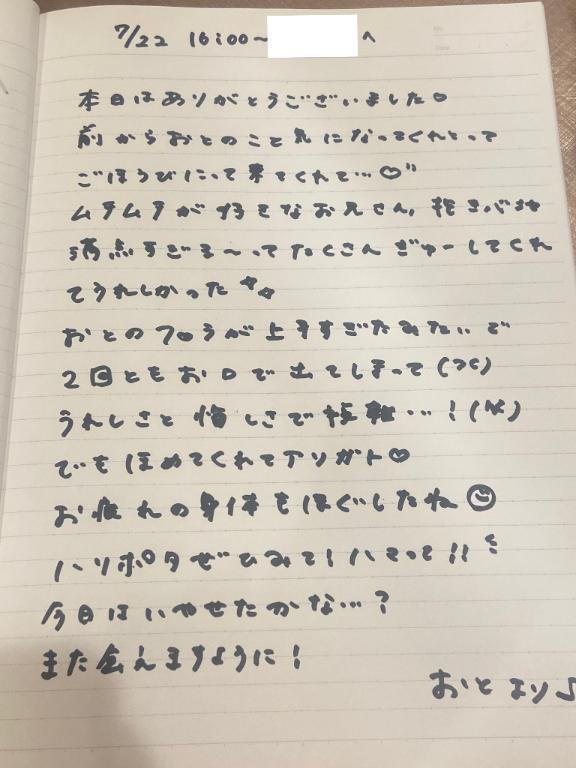 7/22 16:00～ へ
本日はありがとうございました♡
前からおとのこと気になってくれとって
ごほうびにって来てくれて…♡
ムチムチが好きなお兄さん,抱き
満点すごる～ってたくさんぎゅーしてくれ
てうれしかった
おとのフロうが上手すぎたみたいで
2回ともお口で出てしまって(><)
うれしさと悔しさで複雑…!(笑)
でもほめてくれてアリガト♡
お疲れの身体もほぐしたね☺
ハリポタぜひみて!ハマって!!
今日はいやせたかな…?
また会えますように!
おとより♪